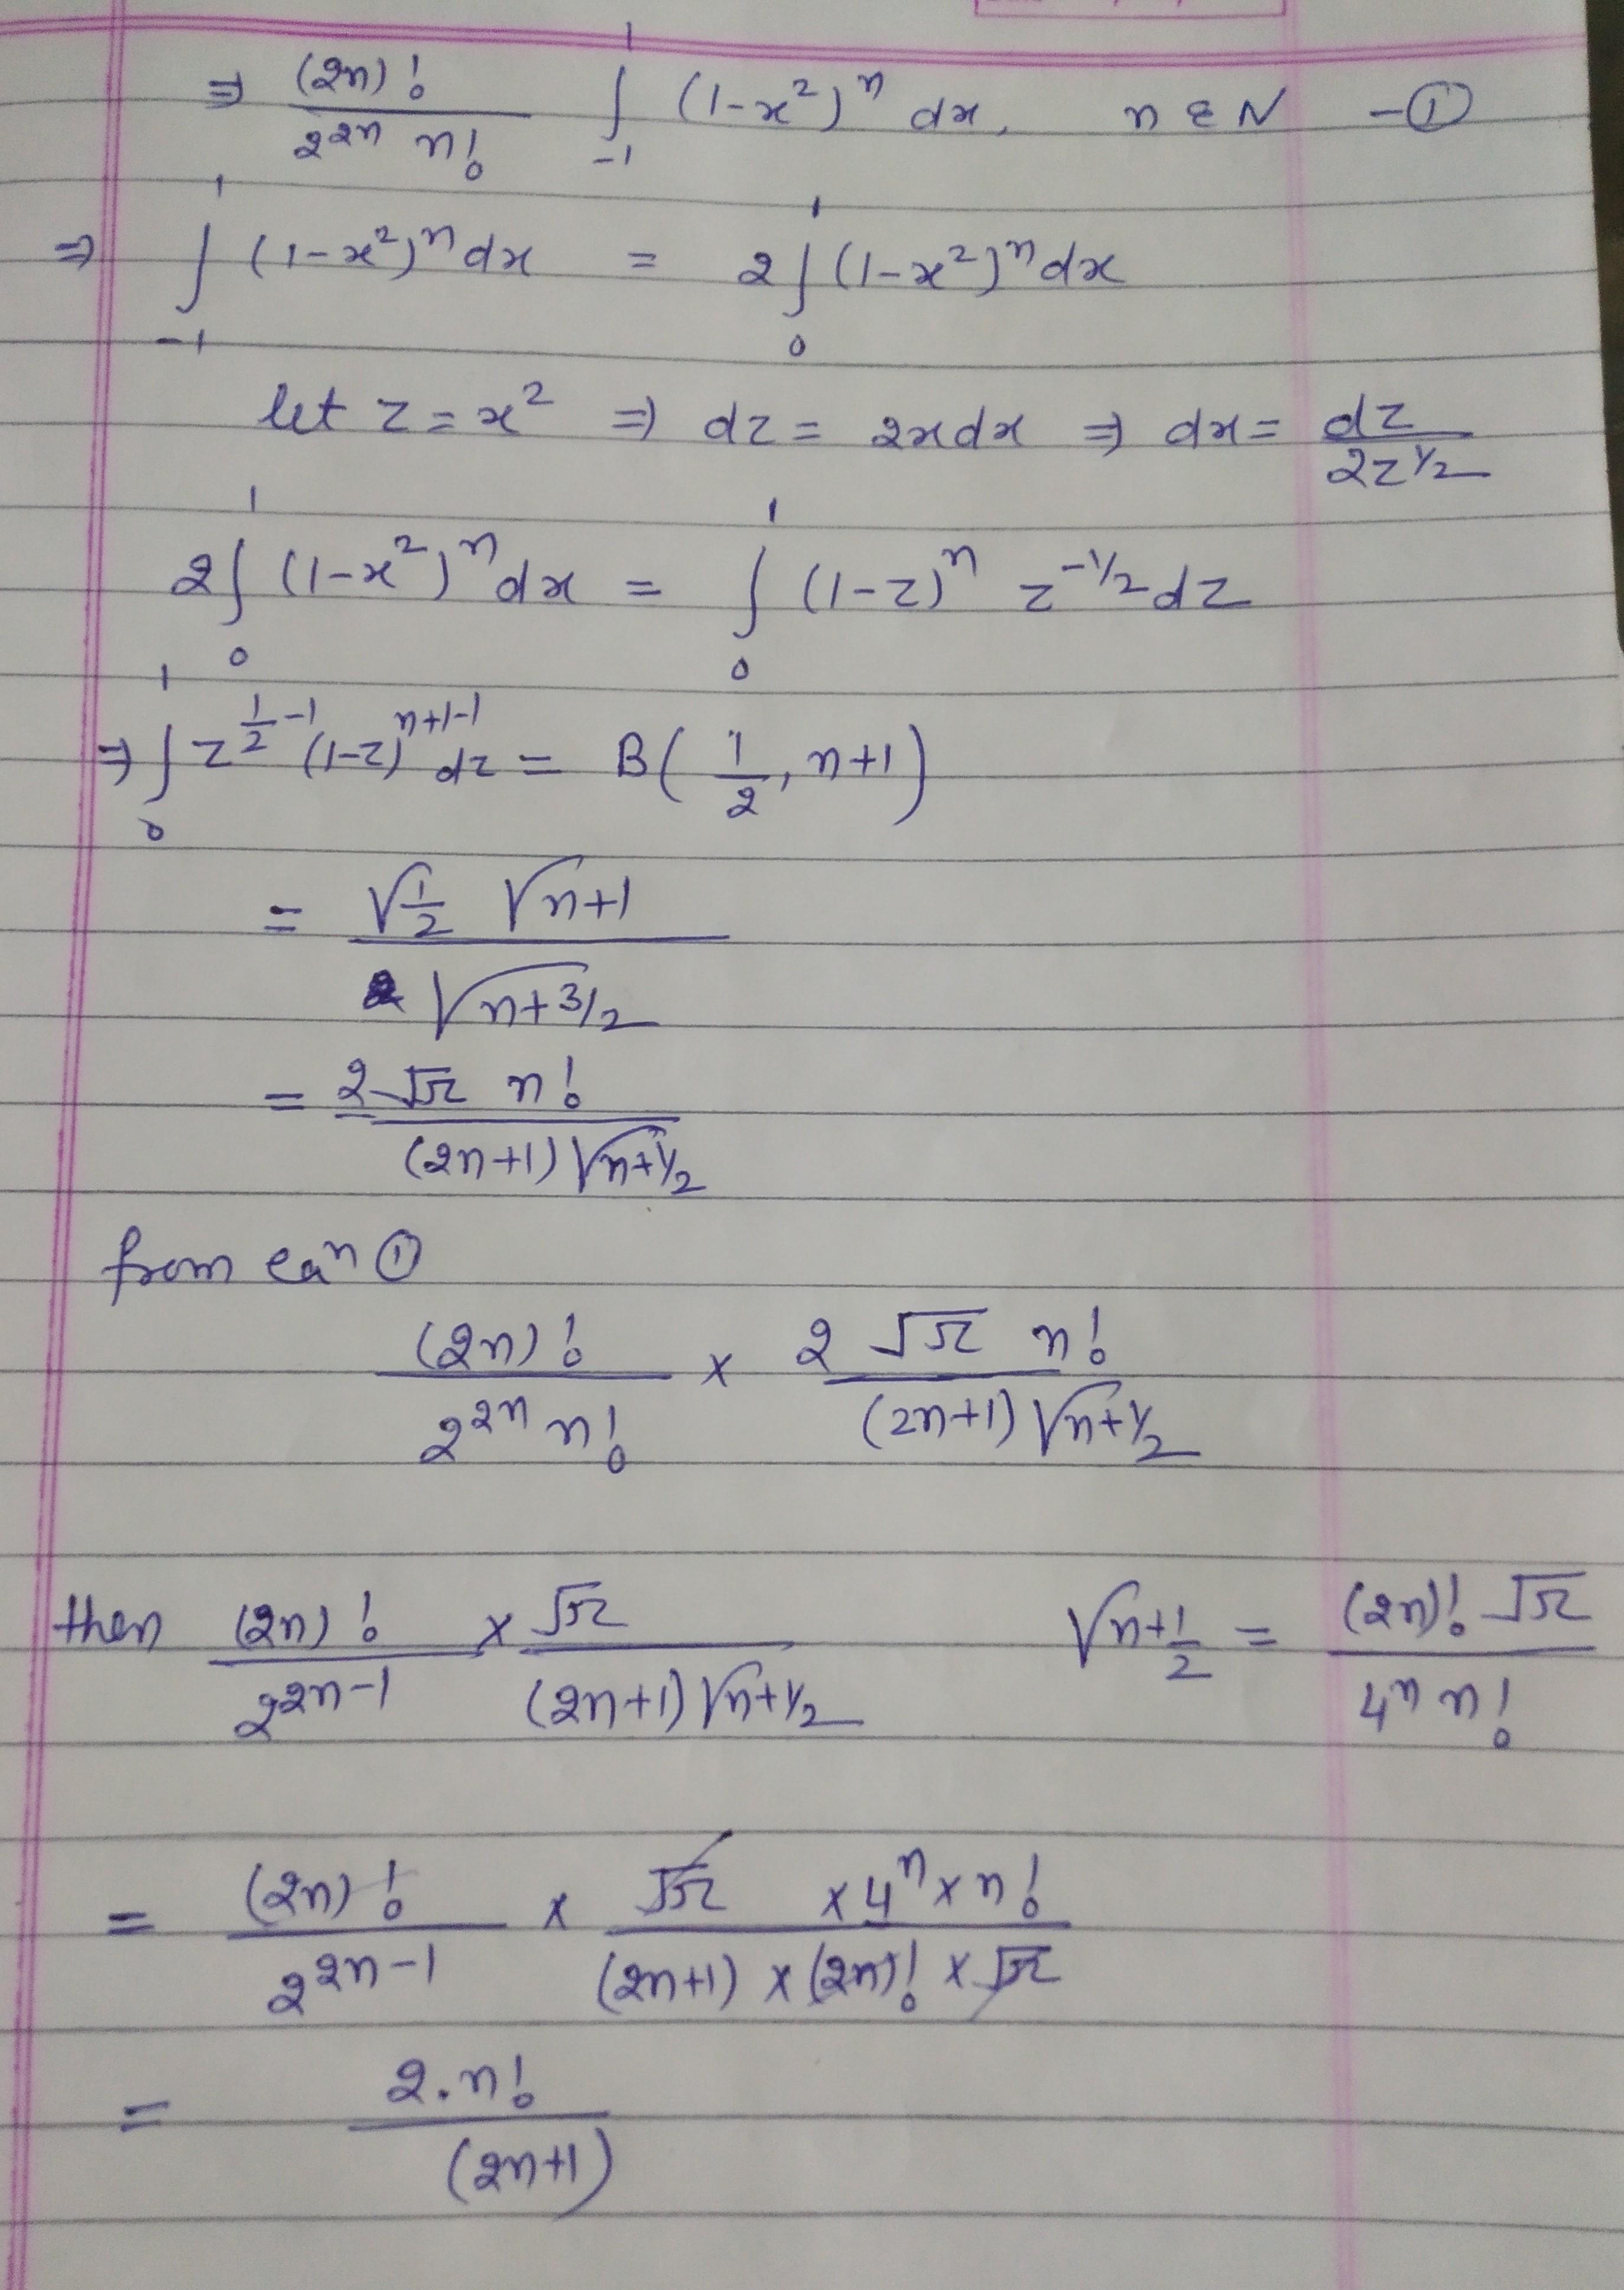 ⇒ (2n)! / 2^{2n} n! ∫_{-1}^{1} (1-x²)^n dx, n ε N -①
⇒ ∫_{-1}^{1} (1-x²)^n dx = 2∫_{0}^{1} (1-x²)^n dx
let z = x² ⇒ dz = 2xdx ⇒ dx = dz / 2z^{1/2}
2∫_{0}^{1} (1-x²)^n dx = ∫_{0}^{1} (1-z)^n z^{-1/2} dz
⇒ ∫_{0}^{1} z^{1/2 -1} (1-z)^{n+1-1} dz = B(1/2, n+1)
= √1/2 √n+1 / √n+3/2
= 2√π n! / (2n+1)√n+1/2
from eqn ①
(2n)! / 2^{2n} n! × 2√π n! / (2n+1)√n+1/2
then (2n)! / 2^{2n-1} × √π / (2n+1)√n+1/2 √n+1/2 = (2n)! √π / 4^n n!
= (2n)! / 2^{2n-1} × √π × 4^n × n! / (2n+1) × (2n)! × √π
= 2.n! / (2n+1)